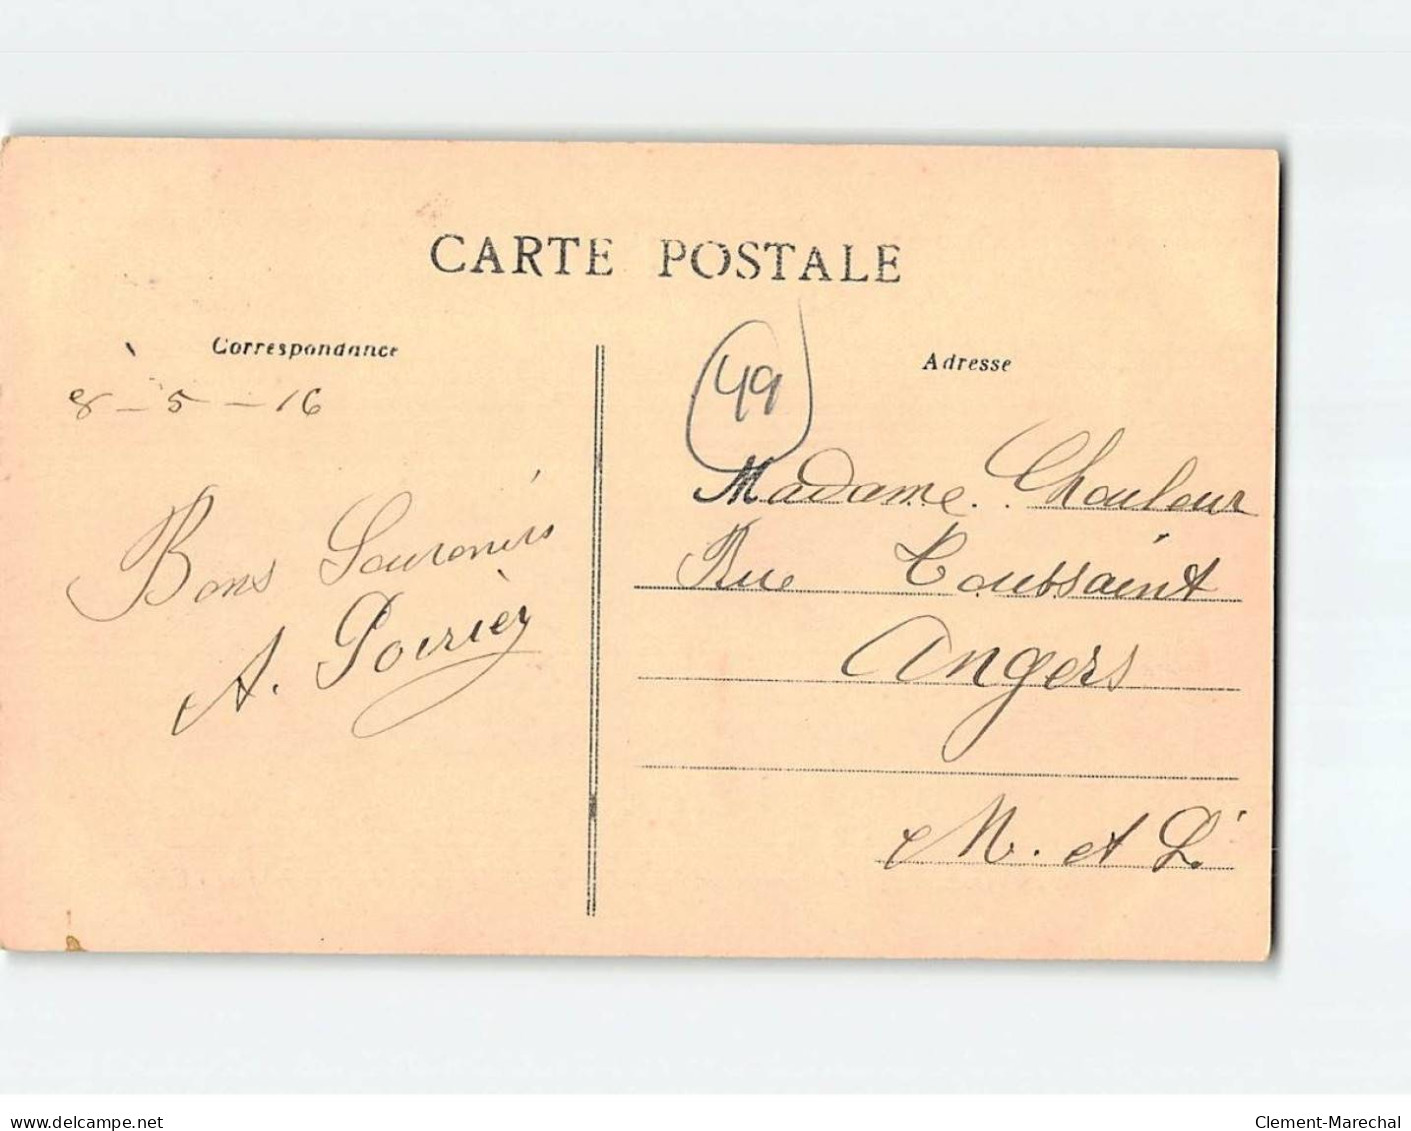 CARTE POSTALE
Correspondance
8 - 5 - 16
Bons Souvenirs
A. Poirier
Adresse
49
Madame Chouleur
Rue Toussaint
Angers
M. et L.
delcampe.net
Clement-Marechal